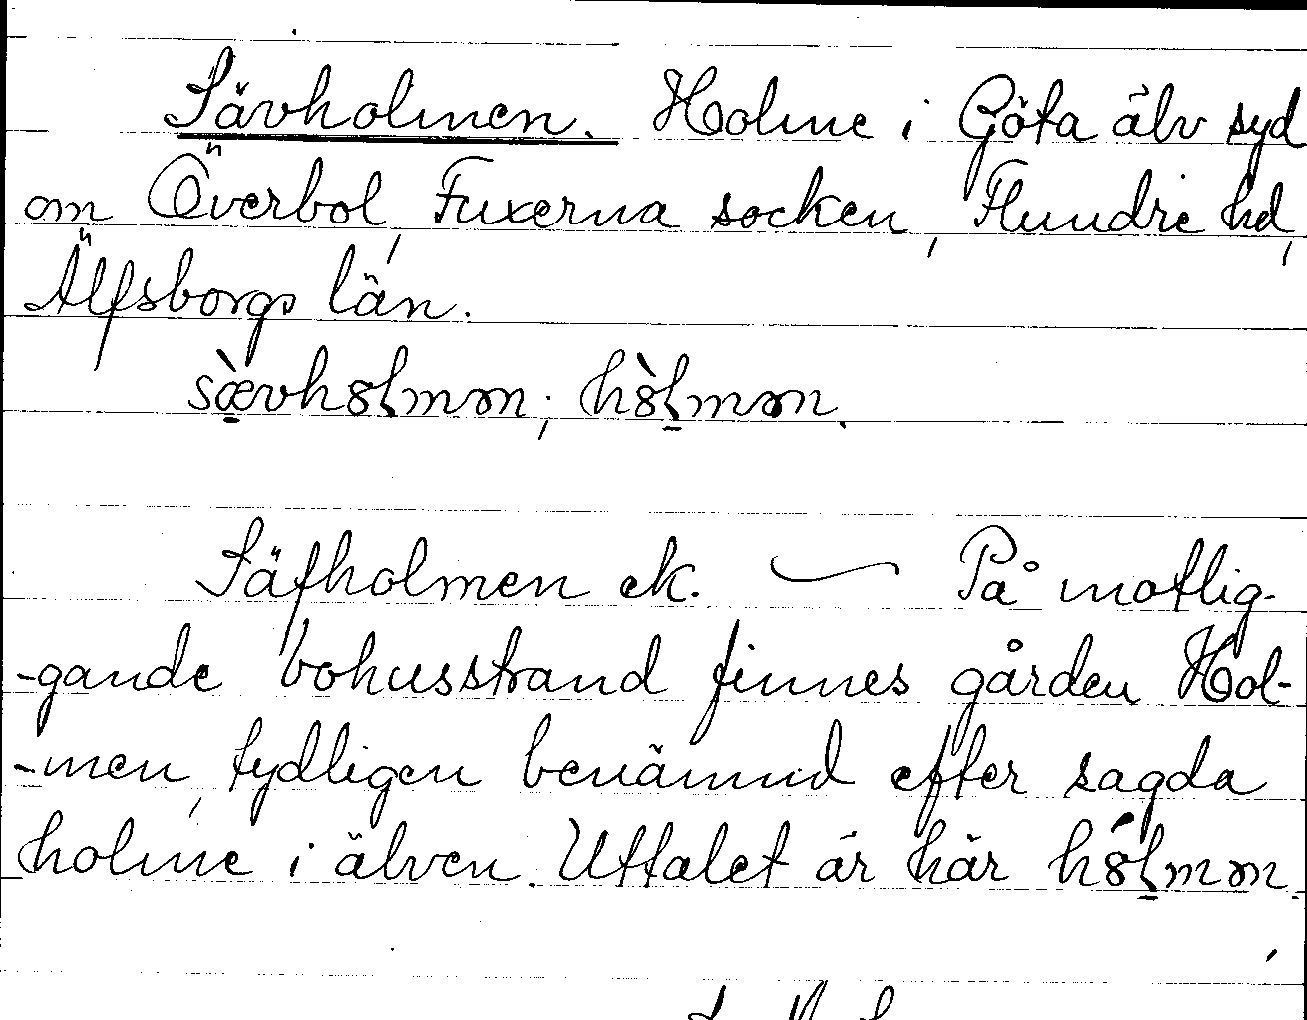 Sävholmen. Holme i Göta älv syd
om Överbol, Fuxerna socken, Flundre hd,
Älfsborgs län.
sæ̀vhȯlmən; hȯ̀lmən.
Säfholmen ek. — På motlig-
-gande bohusstrand finnes gården Hol-
-men, tydligen benämnd efter sagda
holme i älven. Uttalet är här hȯ́lmən.